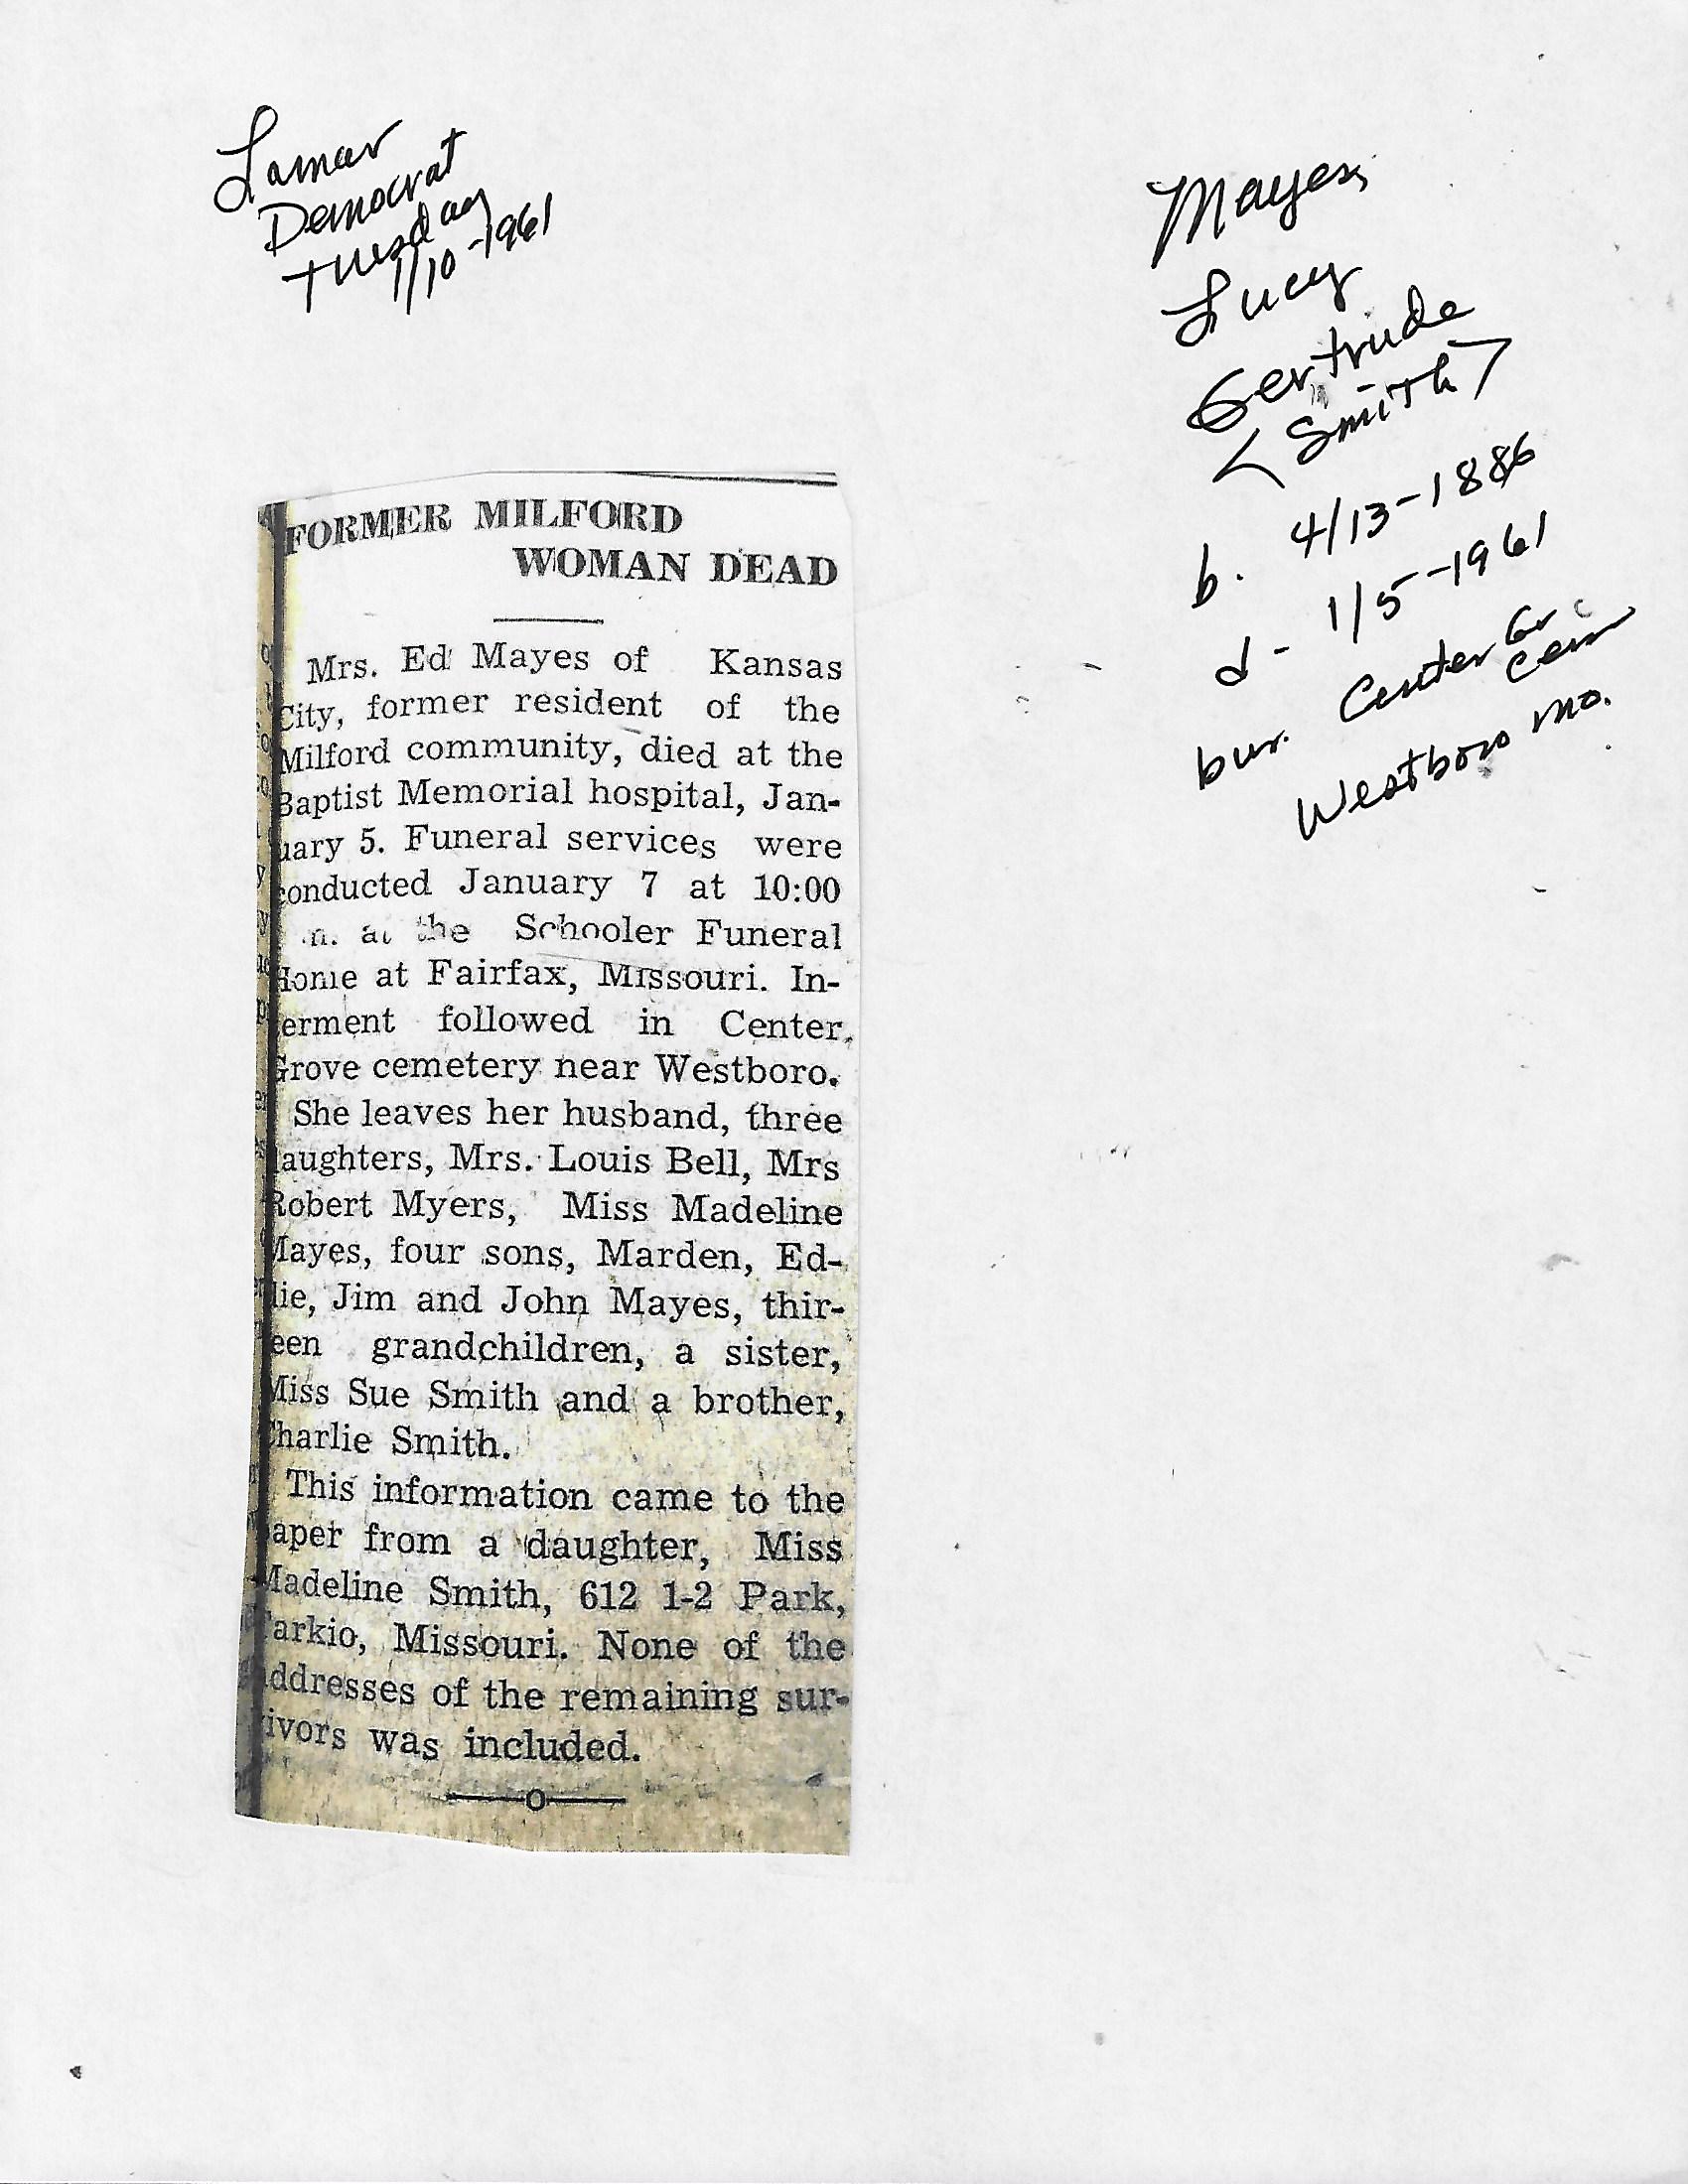 Lamar
Democrat
Tuesday
1/10-1961
Mayes,
Lucy
Gertrude
<Smith>
b. 4/13-1886
d- 1/5-1961
bur. Center Gr
Cem
Westboro Mo.
FORMER MILFORD
WOMAN DEAD
Mrs. Ed Mayes of Kansas
City, former resident of the
Milford community, died at the
Baptist Memorial hospital, Jan-
uary 5. Funeral services were
conducted January 7 at 10:00
n. at the Schooler Funeral
Home at Fairfax, Missouri. In-
erment followed in Center
Grove cemetery near Westboro.
She leaves her husband, three
aughters, Mrs. Louis Bell, Mrs
Robert Myers, Miss Madeline
Mayes, four sons, Marden, Ed-
die, Jim and John Mayes, thir-
een grandchildren, a sister,
Miss Sue Smith and a brother,
Charlie Smith.
This information came to the
aper from a daughter, Miss
Madeline Smith, 612 1-2 Park,
Tarkio, Missouri. None of the
ddresses of the remaining sur-
vivors was included.